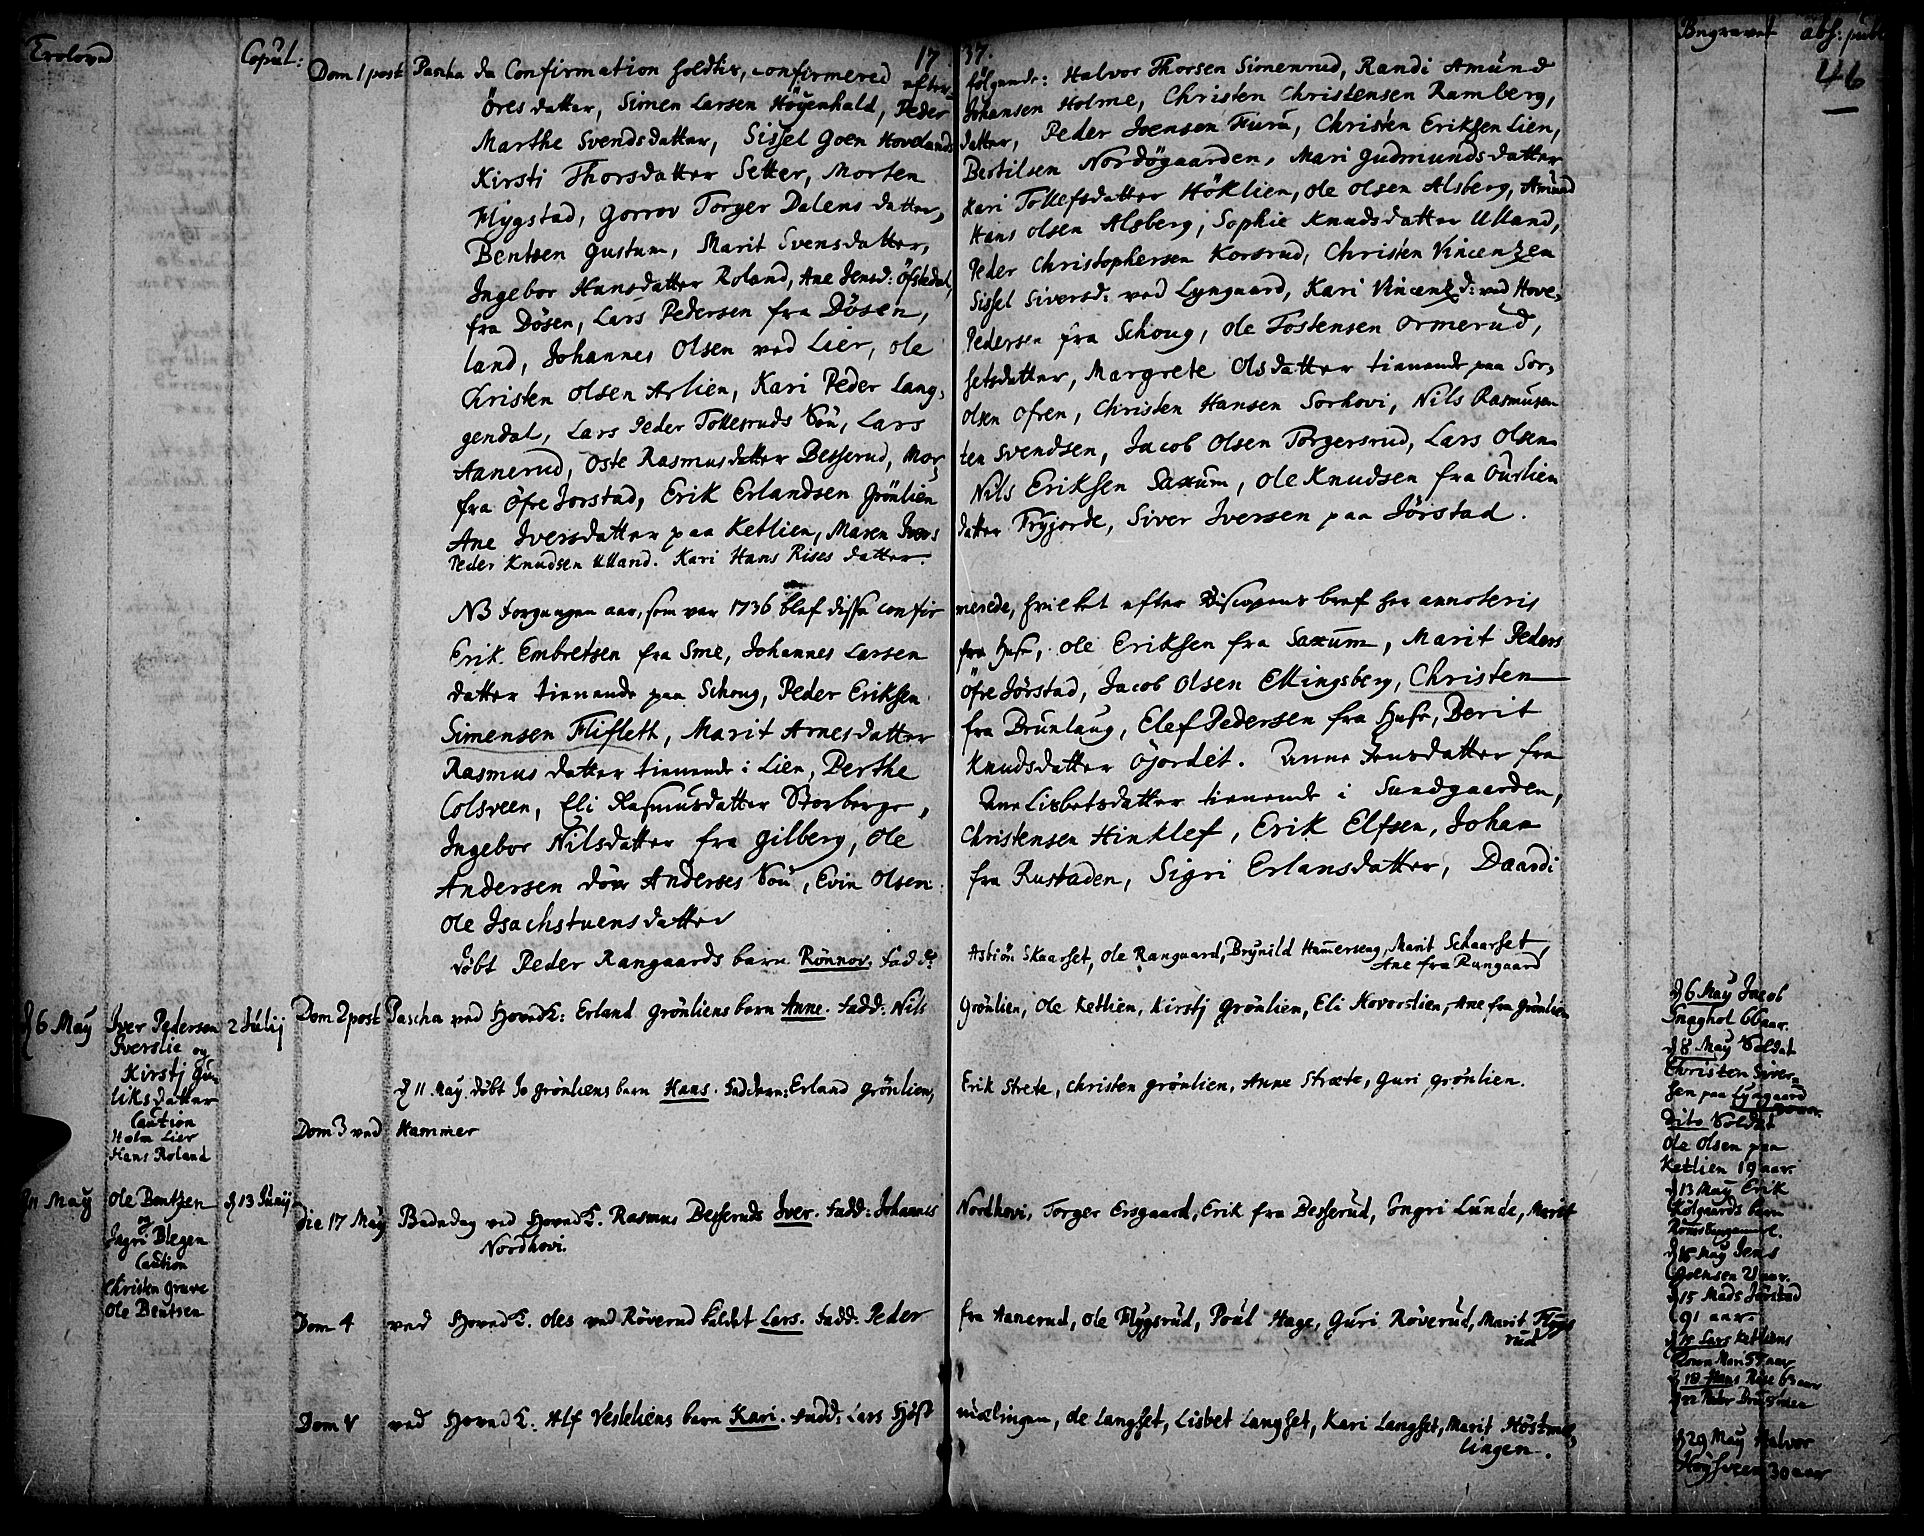 Troloved Copul: 17 37. Begravet abs: publ
46
Dom 1 post Pascha da Confirmation holdtes, confirmered efter- følgende: Halvor Thorsen Simenrud, Randi Amund
öresdatter, Simen Larsen Höyenhald, Peder Johansen Holme, Christen Christensen Ramberg,
Marthe Svendsdatter, Sissel Goen Hovelands datter, Peder Joensen Furu, Christen Eriksen Lien,
Kirsti Thorsdatter Setter, Morten Bertilsen Nordögaarden, Mari Gudmundsdatter
Flygstad, Gorrov Torger Dalens datter, Kari Tollefsdatter Höklien, Ole Olsen Alsberg, Amund
Bentsen Gustum, Marit Svensdatter, Hans Olsen Alsberg, Sophie Knudsdatter Ulland,
Ingebor Hansdatter Roland, Ane Jensd: Öfstedal, Peder Christophersen Korsrud, Christen Vincenzen
fra Dösen, Lars Pedersen fra Dösen, Sissel Siversd: ved Lyngaard, Kari Vincentzd: ved Hove-
land, Johannes Olsen ved Lier, Ole Pedersen fra Schoug, Ole Tostensen Ormerud,
Christen Olsen Arlien, Kari Peder Lang- setsdatter, Margrete Olsdatter tienende paa Sor-
gendal, Lars Peder Tollesruds Sön, Lars Olsen Ofren, Christen Hansen Sorhovi, Nils Rasmusen
Aanerud, Oste Rasmusdatter Besserud, Mor- ten Svendsen, Jacob Olsen Torgersrud, Lars Olsen
fra Öfre Jorstad, Erik Erlandsen Grönlien Nils Eriksen Saxum, Ole Knudsen fra Ourlien
Ane Iversdatter paa Ketlien, Maren Ivers datter Fryjorde, Siver Iversen paa Jörstad.
Peder Knudsen Ulland. Kari Hans Rises datter.
NB forgangen aar, som var 1736 blef disse confir merede, hvilket efter Biscopens bref her annoteris
Erik Embretsen fra Sme, Johannes Larsen fra Huse, Ole Eriksen fra Saxum, Marit Peders
datter tienende paa Schoug, Peder Eriksen Öfre Jörstad, Jacob Olsen Ellingsberg, Christen
Simensen Fliflett, Marit Arnesdatter fra Brunlaug, Elef Pedersen fra Huse, Berit
Rasmus datter tienende i Lien, Berthe Knudsdatter Öjordet. Anne Jensdatter fra
Colsveen, Eli Rasmusdatter Storberge, Ane Lisbetsdatter tienende i Sundgaarden,
Ingebor Nilsdatter fra Gilberg, Ole Christensen Hinklef, Erik Elfsen, Johan
Andersen döw Anderses Sön, Evin Olsen fra Rustaden, Sigri Erlansdatter, Daardi
Ole Isachstuens datter
döbt Peder Rangaards barn Rönnov. Fadd: Asbiön Skaarset, Ole Rangaard, Brynild Hamerseng, Marit Schaarset,
Ane fra Rangaard
d 6 May Iver Pedersen 2 Julij Dom 2 post Pascha ved Hoved K: Erland Grönliens barn Anne. Fadd: Nils Grönlien, Ole Ketlien, Kirstj Grönlien, Eli Kovorstien, Ane fra Grönlien
Iverslie og
Kirstj Gu-
liksdatter
Caution
Holm Lier
Hans Roland
d 11 May. döbt Jo Grönliens barn Hans. Faddere: Erland Grönlien, Erik Strete, Christen Grönlien, Anne Stræte, Guri Grönlien.
Dom 3 ved Hammer
d 11 May Ole Bentzen d 13 Junij
og
Ingri Blegen
Caution
Christen Grave
Ole Bentsen
Die 17 May Bededag ved Hoved K. Rasmus Besseruds Iver. Fadd: Johannes Nordhovi, Torger Ersgaard, Erik fra Besserud, Ingri Lunde, Marit
Nordhovi.
Dom 4 ved Hoved K. Oles ved Röverud kaldet Lars. Fadd: Peder fra Aanerud, Ole Flygsrud, Poul Hage, Guri Röverud, Marit Flygs
rud
Dom 5 ved Hoved K. Alf Vesleliens barn Kari. Fadd: Lars Höst mælingen, Ole Langset, Lisbet Langset, Kari Langset, Marit Höstmæ-
lingen.
d 6 May Jacob
66 aar.
d 8 May Soldat
Christen Siver-
sen paa Lyngaard
dito Soldat
Ole Olsen paa
Ketlien 19 aar
d 13 May Erik
Kölgaards barn
d 15 May Jens
d 15 Mads Jörstad
91 aar.
Lars Ketliens
Hans Rise 63 aar
d 22 Peder
d 29 May Halvor
Höysveen 30 aar